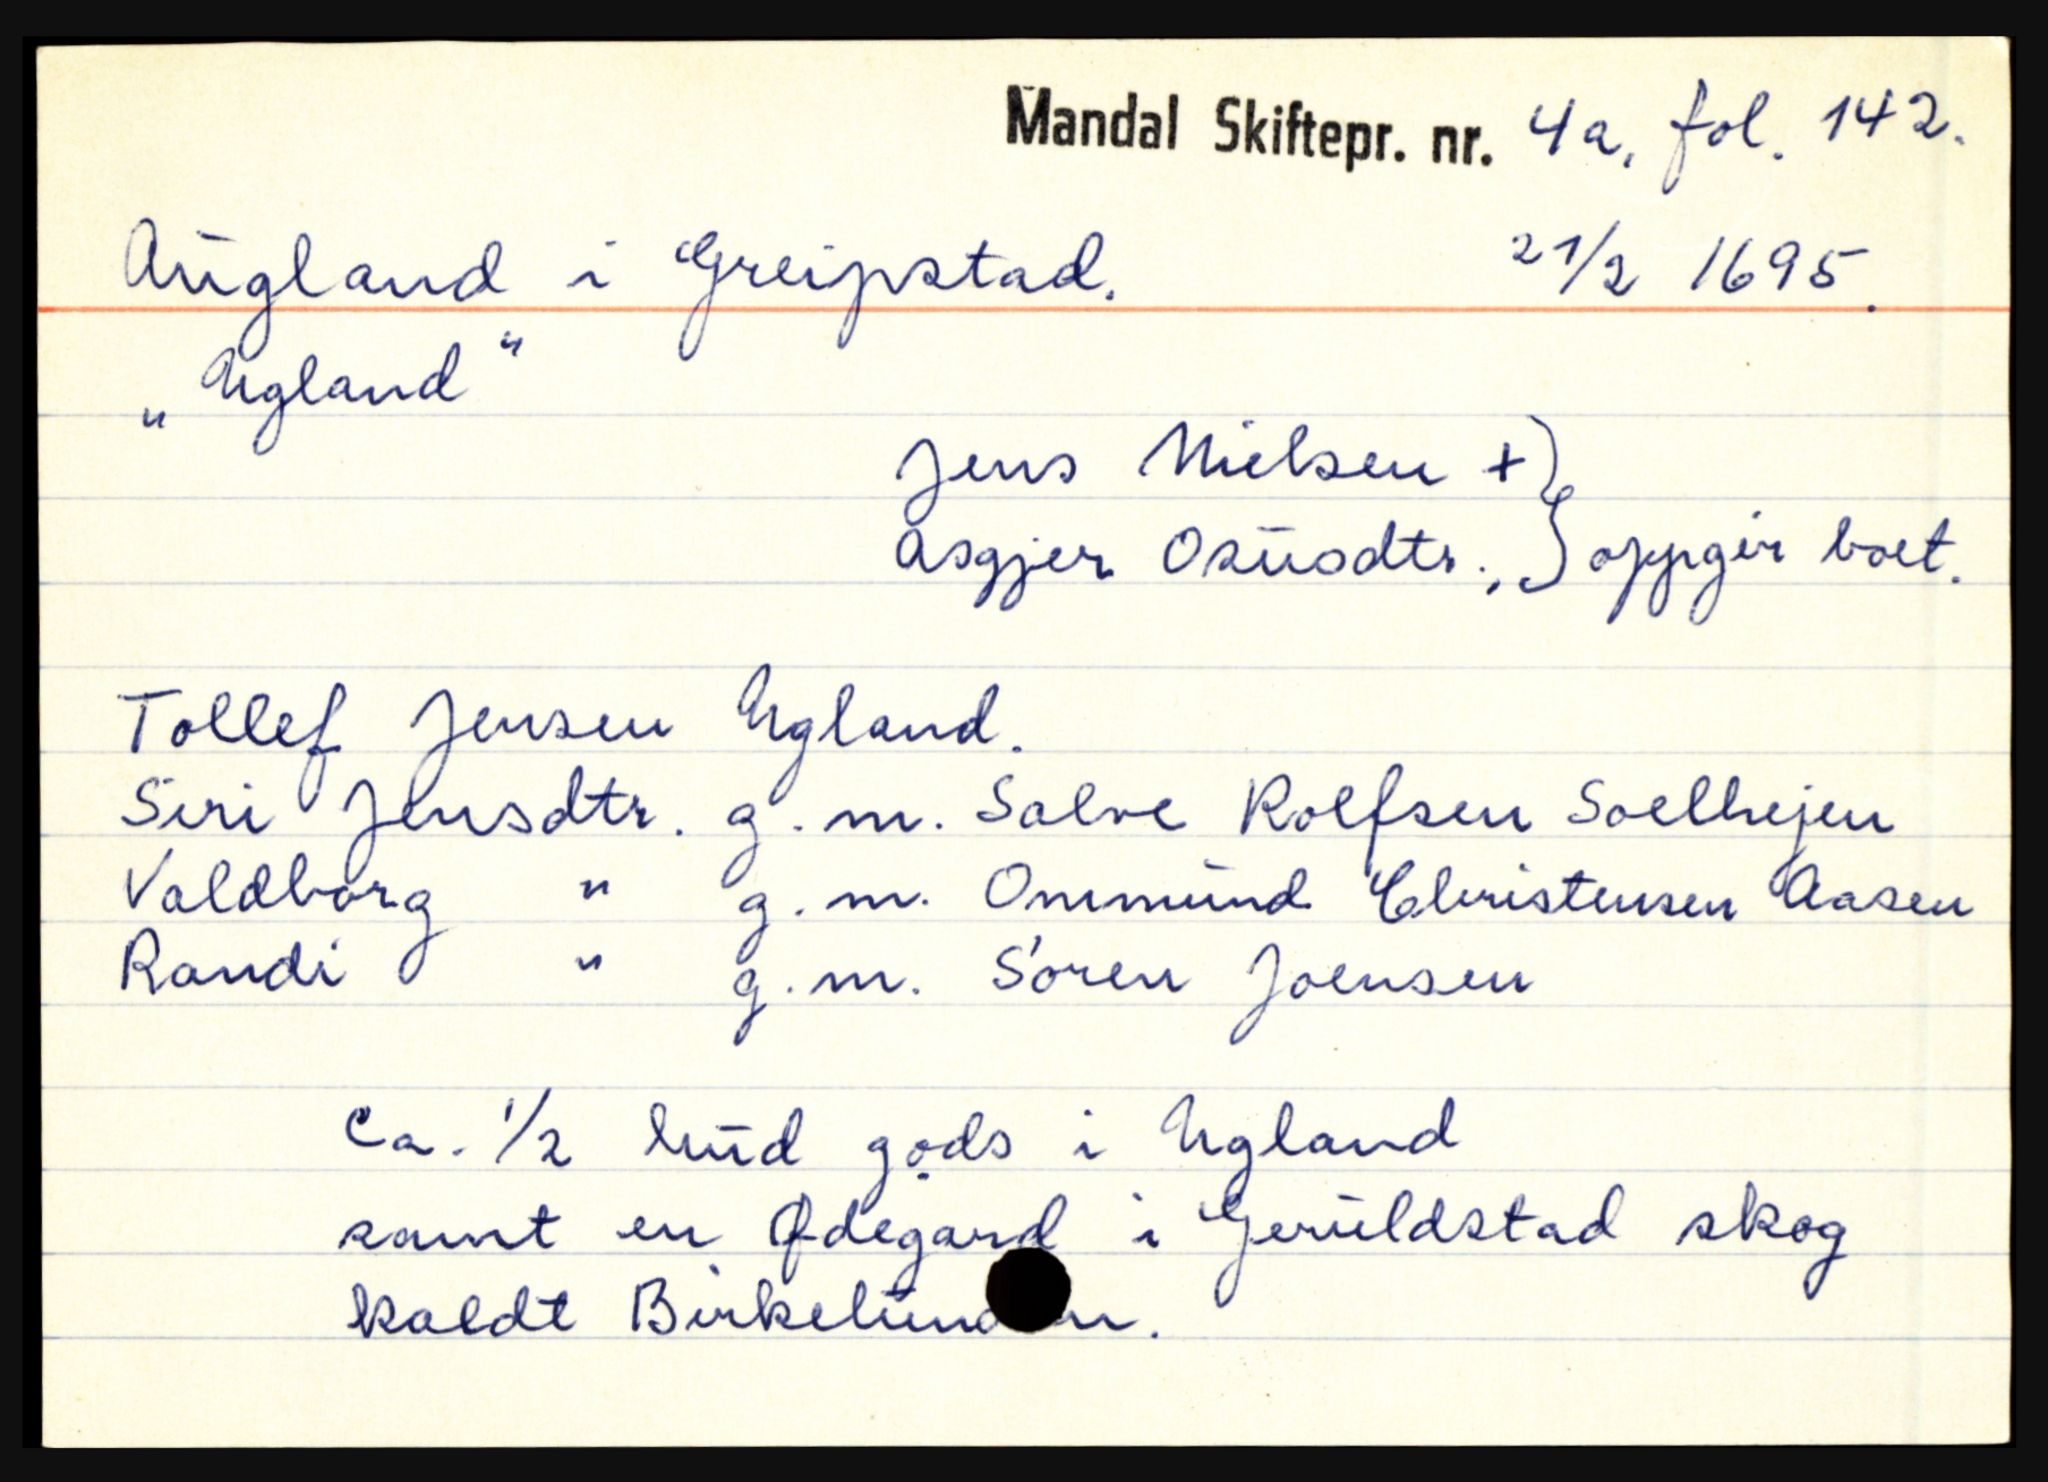 Mandal Skiftepr. nr. 4a, fol. 142.
Augland i Greipstad. 21/2 1695.
"Ugland"
Jens Nielsen +
Asgjer Osusdtr., } oppgir boet.
Tollef Jensen Ugland.
Siri Jensdtr. g.m. Salve Rolfsen Soelhejen
Valdborg " g.m. Ommund Christensen Aasen
Randi " g.m. Søren Joensen
Ca. 1/2 hud gods i Ugland
samt en Ødegard i Geruldstad skog
kaldt Birkelunden.